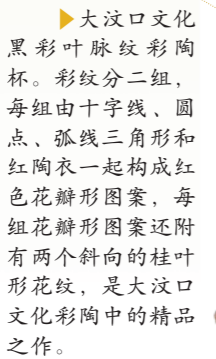 ▶大汶口文化
黑彩叶脉纹彩陶
杯。彩纹分二组，
每组由十字线、圆
点、弧线三角形和
红陶衣一起构成红
色花瓣形图案，每
组花瓣形图案还附
有两个斜向的桂叶
形花纹，是大汶口
文化彩陶中的精品
之作。